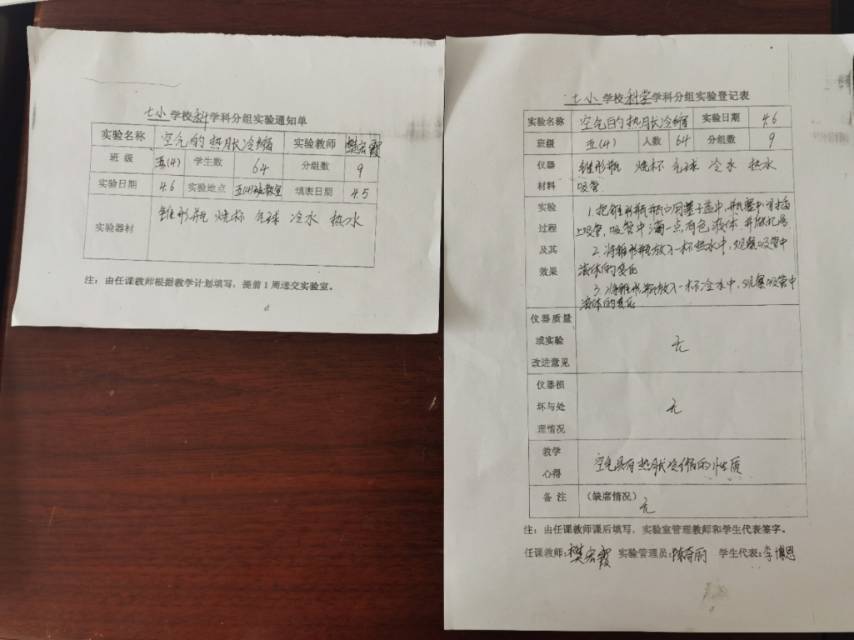 七小学校科学科分组实验通知单
实验名称 空气的热胀冷缩 实验教师 樊宏霞
班级 五(4) 学生数 64 分组数 9
实验日期 4.6 实验地点 五(4)班教室 填表日期 4.5
实验器材 锥形瓶 烧杯 气球 冷水 热水
注：由任课教师根据教学计划填写，提前1周送交实验室。
七小学校科学学科分组实验登记表
实验名称 空气的热胀冷缩 实验日期 4.6
班级 五(4) 人数 64 分组数 9
仪器 锥形瓶 烧杯 气球 冷水 热水
材料 吸管
实验 1.把锥形瓶瓶口用塞子盖中,瓶塞中间插
过程 上吸管,吸管中滴一点有色液体,并做记号
及其 2.将锥形瓶放入一杯热水中,观察吸管中
效果 液体的变化
3.将锥形瓶放入一杯冷水中,观察吸管中
液体的变化
仪器质量
或实验 无
改进意见
仪器损
坏与处 无
理情况
教学
心得 空气具有热胀冷缩的性质
备注 (缺席情况) 无
注：由任课教师课后填写，实验室管理教师和学生代表签字。
任课教师:樊宏霞 实验管理员:陈奇丽 学生代表:李博恩